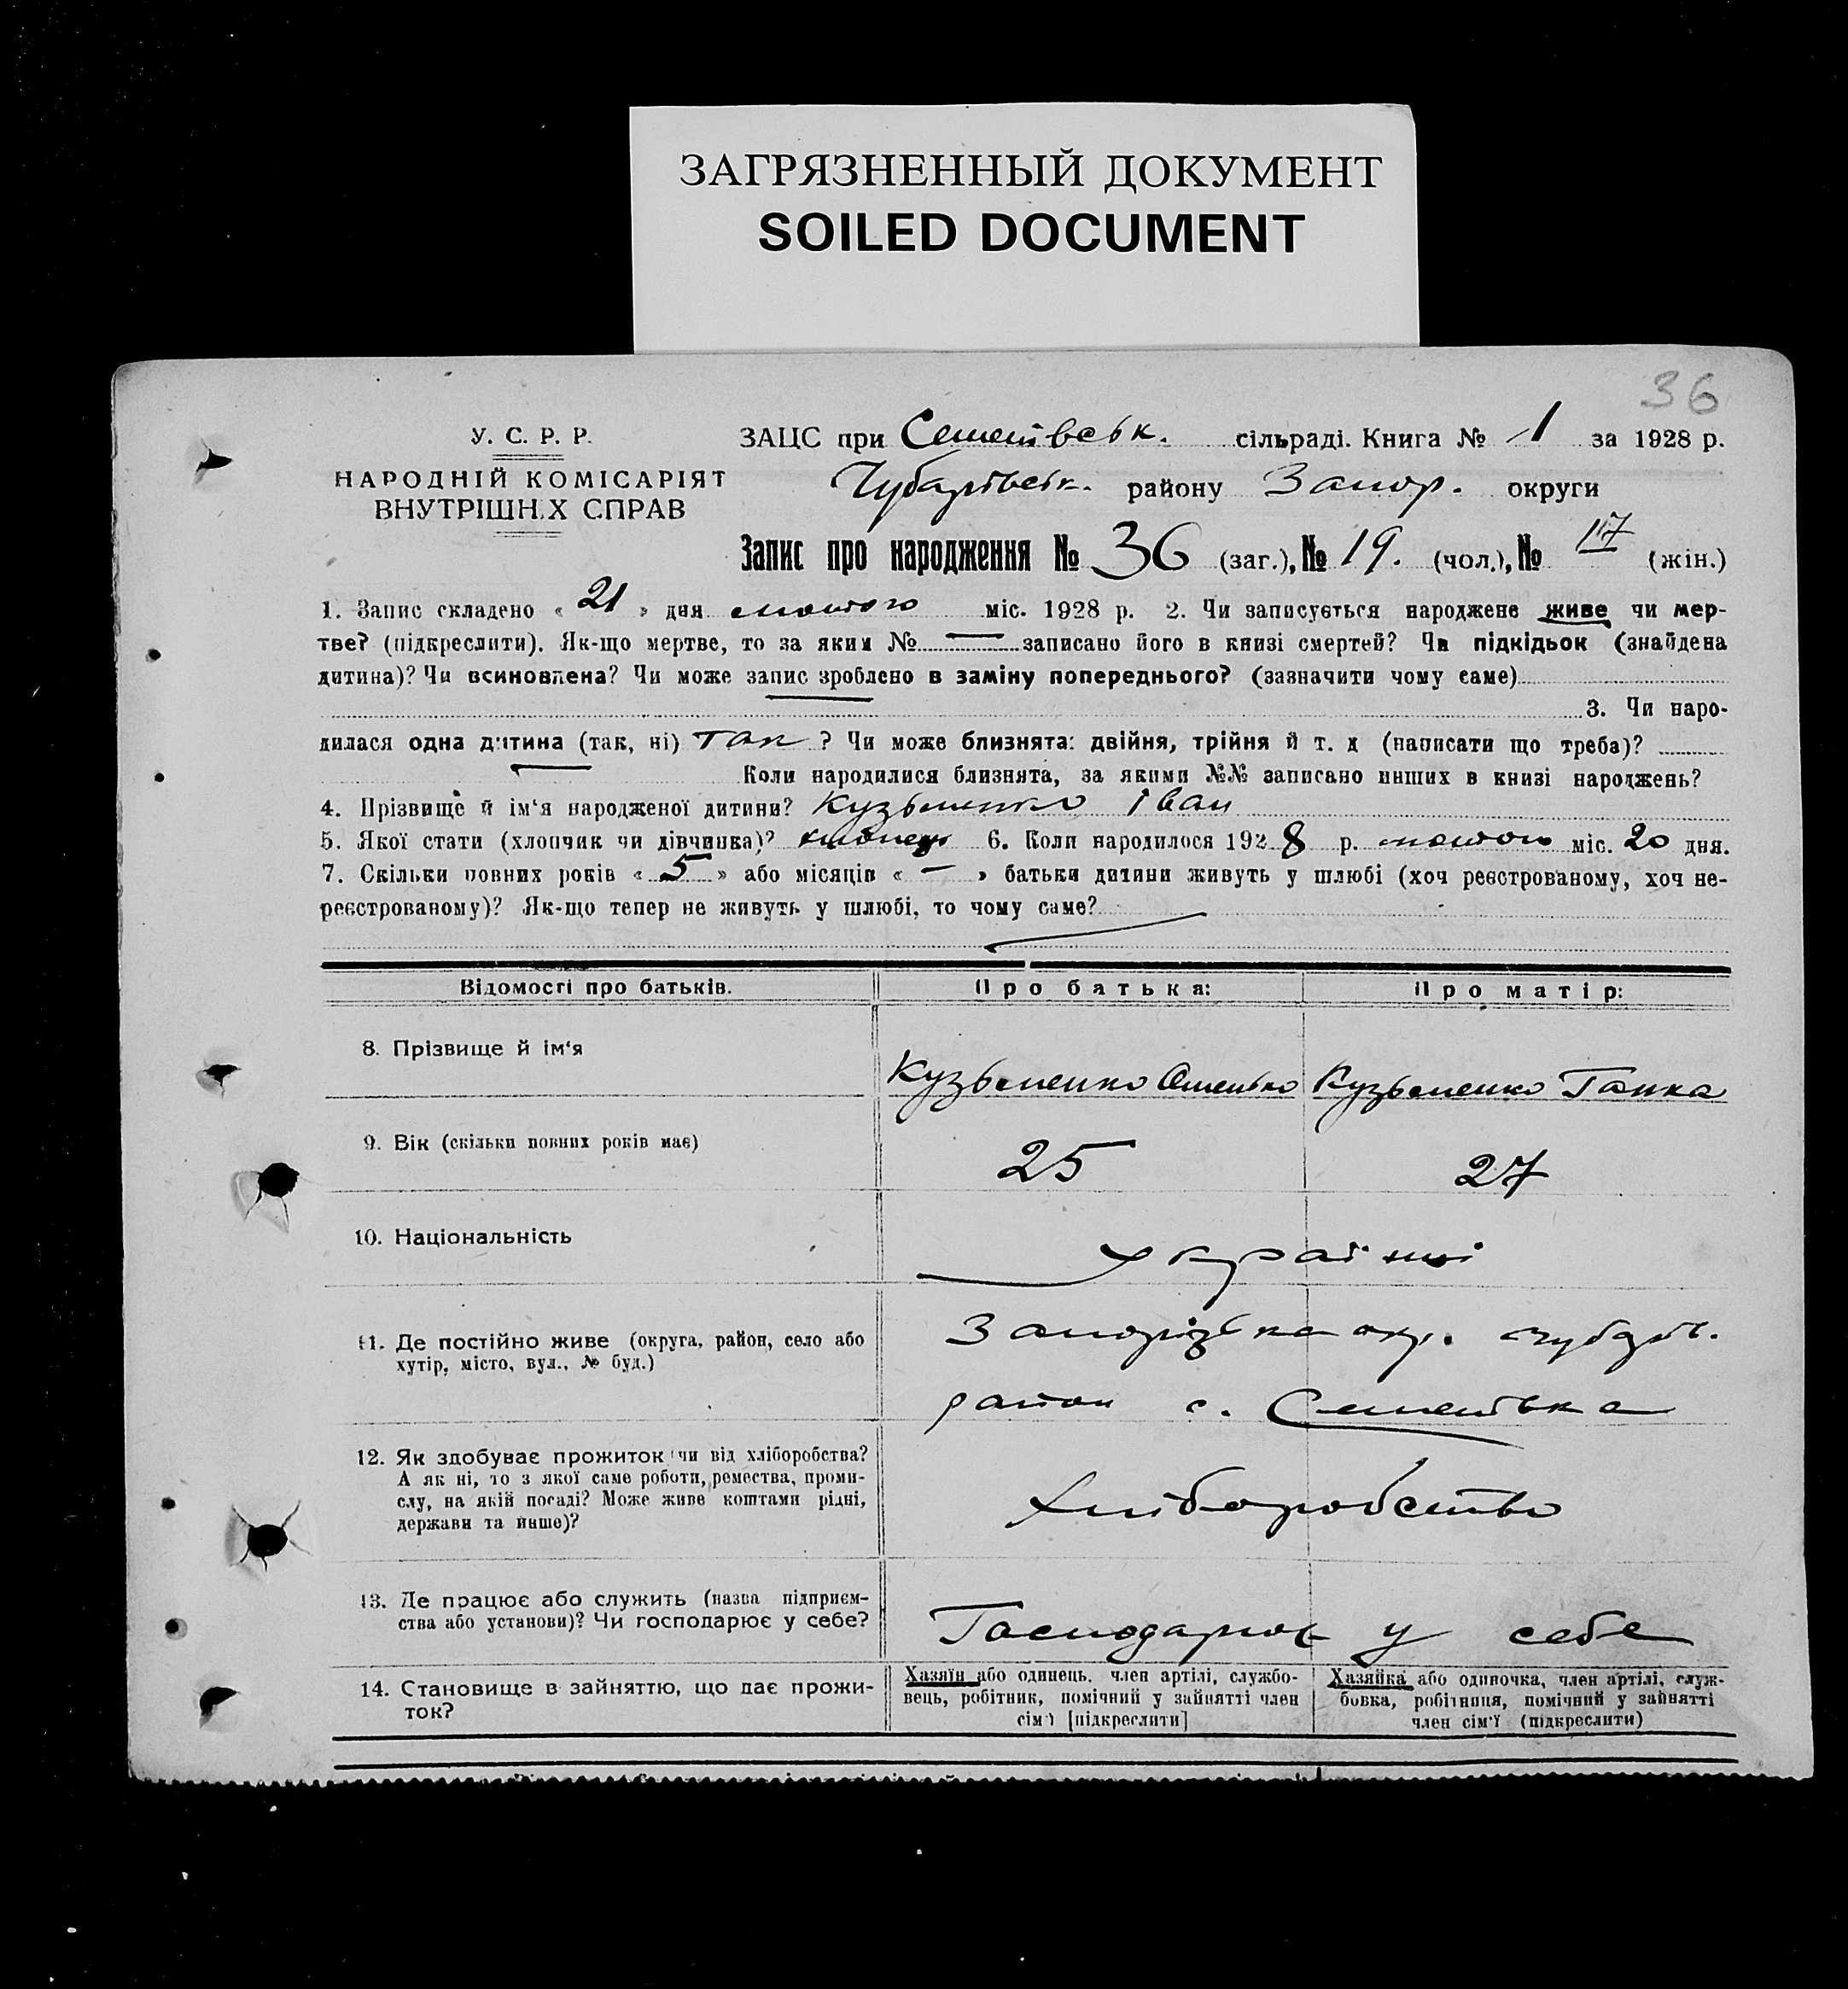 ЗАГРЯЗНЕННЫЙ ДОКУМЕНТ
SOILED DOCUMENT
36
У. С. Р. Р.
НАРОДНІЙ КОМІСАРІЯТ
ВНУТРІШНІХ СПРАВ
ЗАЦС при Семенівськ. сільраді. Книга № 1 за 1928 р.
Чубарівськ. району Запор. округи
Запис про народження № 36 (заг.), № 19. (чол.), № 17 (жін.)
1. Запис складено « 21 » дня лютого міс. 1928 р. 2. Чи записується народжене живе чи мер-
тве? (підкреслити). Як-що мертве, то за яким № — записано його в книзі смертей? Чи підкідьок (знайдена
дитина)? Чи всиновлена? Чи може запис зроблено в заміну попереднього? (зазначити чому саме)
3. Чи наро-
дилася одна дитина (так, ні) так ? Чи може близнята: двійня, трійня й т. д (написати що треба)?
Коли народилися близнята, за якими №№ записано инших в книзі народжень?
4. Прізвище й ім‘я народженої дитини? Кузьменко Іван
5. Якої стати (хлопчик чи дівчинка)? хлопець 6. Коли народилося 1928 р. лютого міс. 20 дня.
7. Скільки повних років « 5 » або місяців « — » батьки дитини живуть у шлюбі (хоч реєстрованому, хоч не-
реєстрованому)? Як-що тепер не живуть у шлюбі, то чому саме?
Відомості про батьків. Про батька: Про матір:
8. Прізвище й ім‘я Кузьменко Омелько Кузьменко Ганка
9. Вік (скільки повних років має) 25 27
10. Національність Україні
11. Де постійно живе (округа, район, село або
хутір, місто, вул., № буд.)
Запорізька окр. Чубарів.
район с. Семенівка
12. Як здобуває прожиток чи від хліборобства?
А як ні, то з якої саме роботи, ремества, проми-
слу, на якій посаді? Може живе коштами рідні,
держави та инше)?
Хліборобство
13. Де працює або служить (назва підприєм-
ства або установи)? Чи господарює у себе?
Господарює у себе
14. Становище в зайняттю, що дає прожи-
ток?
Хазяїн або одинець, член артілі, службо-
вець, робітник, помічний у зайнятті член
сім‘ї [підкреслити]
Хазяйка або одиночка, член артілі, служ-
бовка, робітниця, помічний у зайнятті
член сім‘ї (підкреслити)